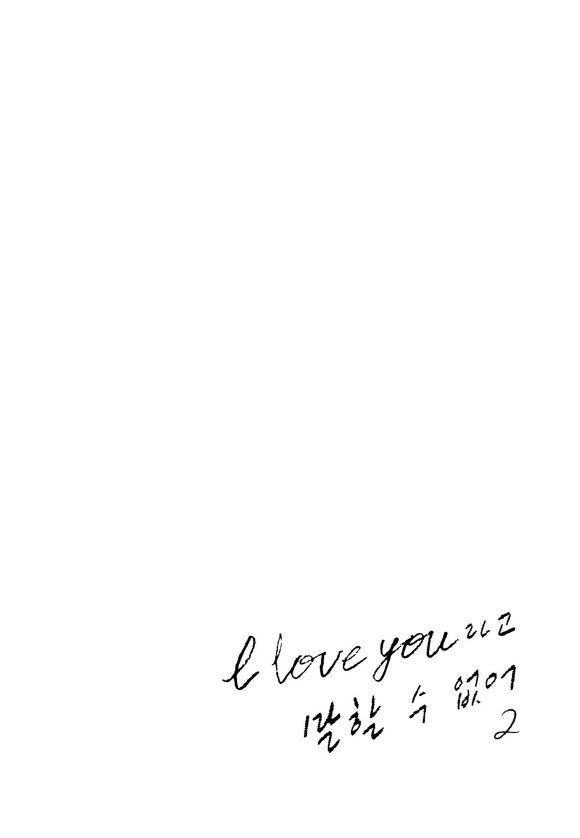 I love you라고
말할 수 없어
2